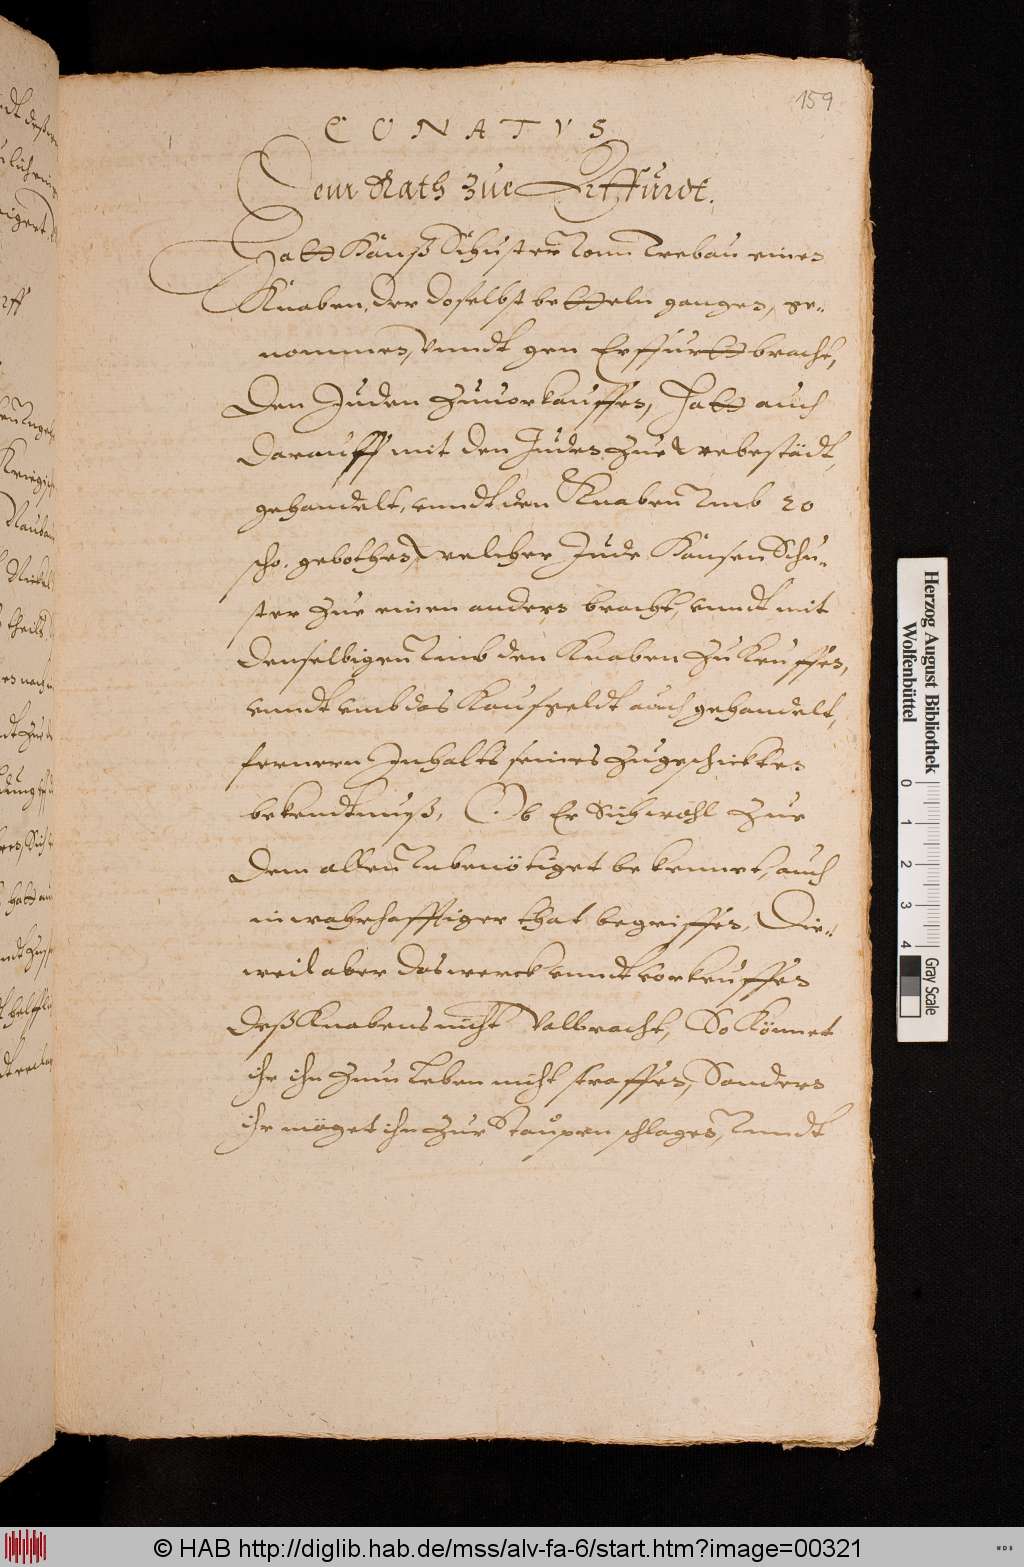 159
CONATVS
Dem Rath zue Erffurdt.
Hatt Hanß Schuster vom Trebau einen
Knaben, der doselbst betteln gangen, ge-
nommen, vnndt gen Erffurtt bracht,
Den Juden zuuorkauffen, Hatt auch
darauff mit den Juden zue
gehandelt, vnndt den Knaben vmb 20
scho. gebothen, welcher Jude Hansen Schu-
ster zue einen andern bracht, vnndt mit
denselbigen vmb den Knaben zu keuffen,
vnndt vmb das Kaufgeldt auch gehandelt,
fernern Inhalts seines zugeschickten
bekendtnuß, Ob Er Sich wohl zue
dem allen vnbenötiget bekennet, auch
in wahrhafftiger that begriffen, Die-
weil aber das werck vnndt vorkeuffen
deß Knabens nicht volbracht, So Könnet
ihr ihn zum Leben nicht straffen, Sondern
ihr möget ihn zur Staupen schlagen, vnndt
Herzog August Bibliothek
Wolfenbüttel
0 1 2 3 4
Gray Scale
© HAB http://diglib.hab.de/mss/alv-fa-6/start.htm?image=00321